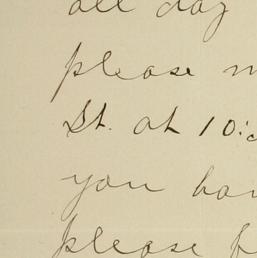 all day
please
St. at 10:
you
please